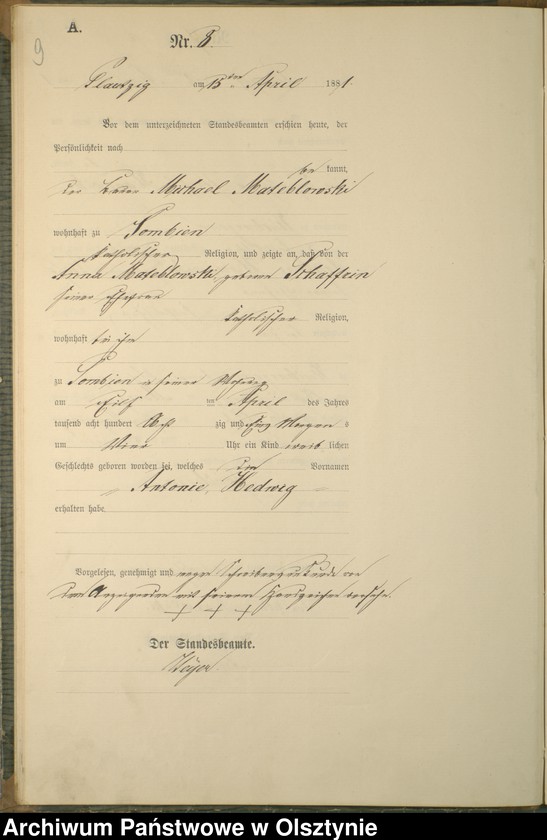 A.
9
Nr. 8.
Plautzig am 15ten April 1881.
Vor dem unterzeichneten Standesbeamten erschien heute, der
Persönlichkeit nach
be kannt,
der Michael Mateblowski
wohnhaft zu Sombien
katholischer Religion, und zeigte an, daß von der
Anna Mateblowski, geborne Schaffrin
seiner Ehefrau
katholischer Religion,
wohnhaft bei ihm
zu Sombien in seiner Wohnung
am Eilf ten April des Jahres
tausend acht hundert Acht zig und Eins Morgens
um Vier Uhr ein Kind weib lichen
Geschlechts geboren worden sei, welches die Vornamen
Antonie, Hedwig
erhalten habe.
Vorgelesen, genehmigt und wegen Schreibensunkunde von
dem Anzeigenden mit seinem Handzeichen versehen.
+ + +
Der Standesbeamte.
Archiwum Państwowe w Olsztynie